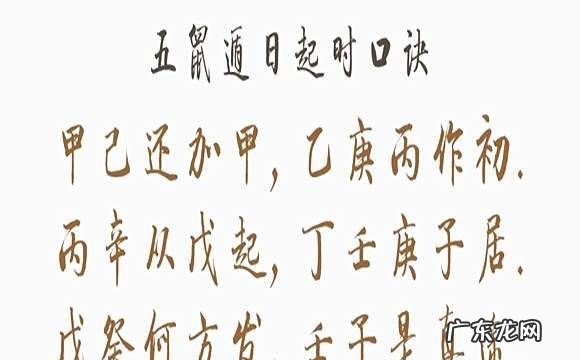 五鼠遁日起时口诀
甲己还加甲,乙庚丙作初.
丙辛从戊起,丁壬庚子居.
戊癸何方发 壬子是真
广东龙网